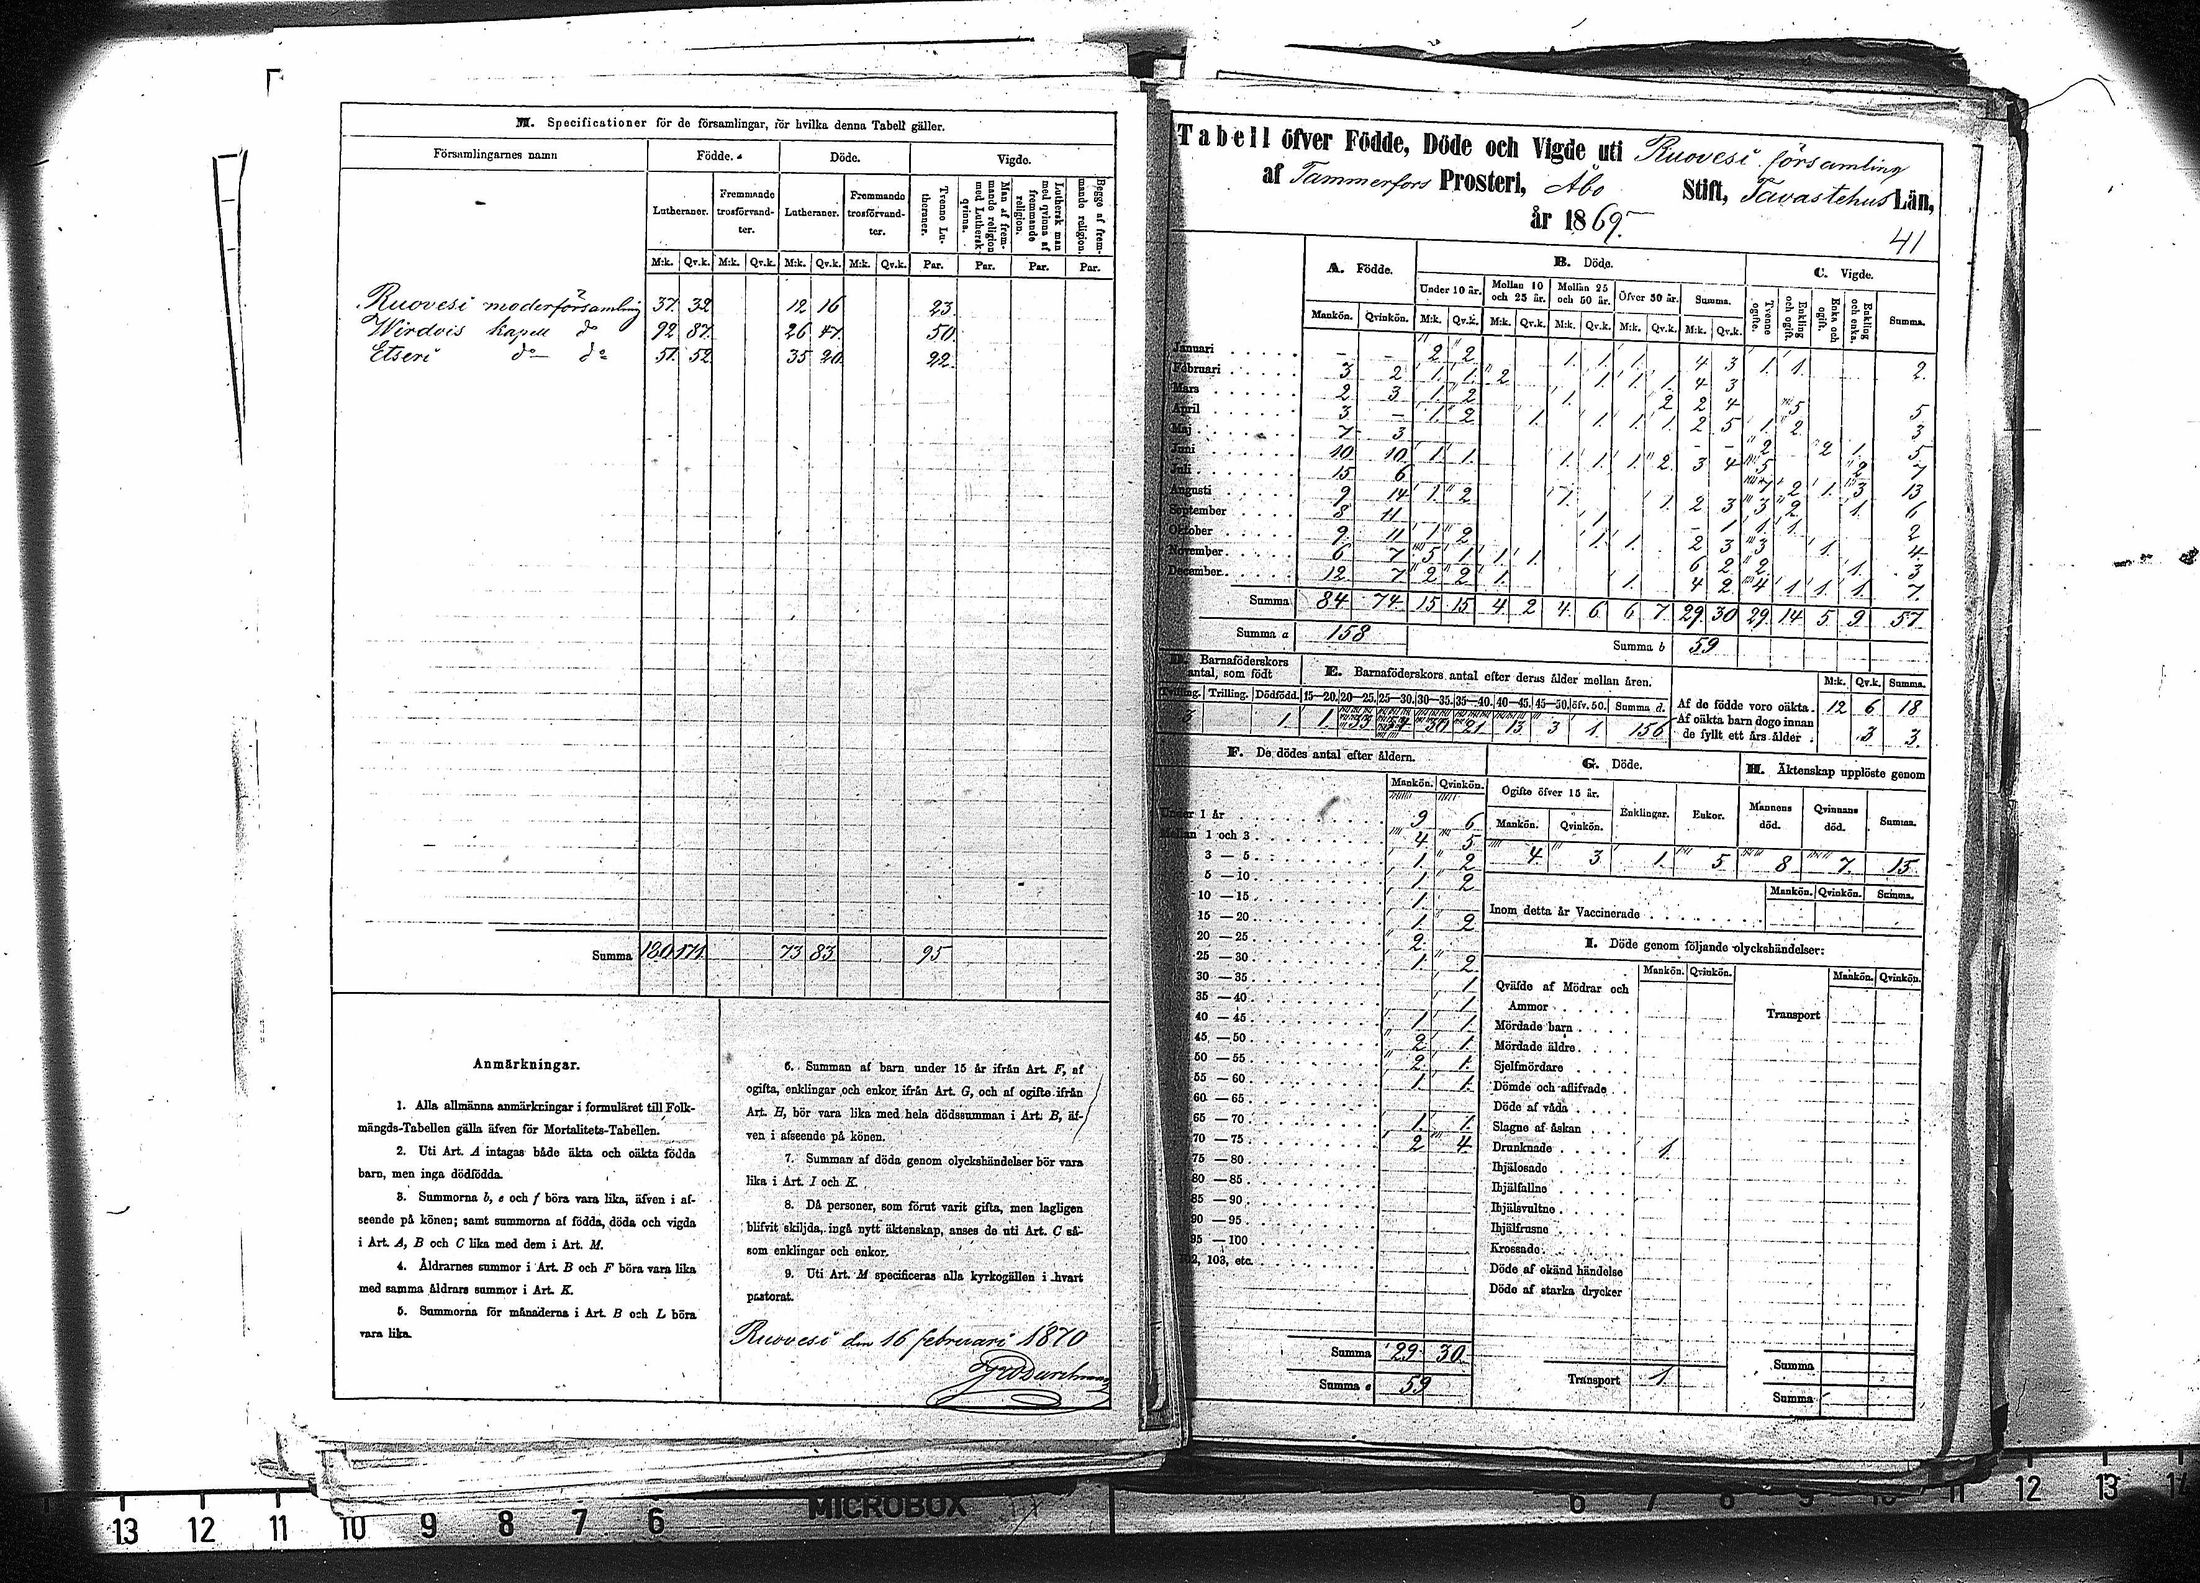 M. Specificationer för de församlingar, för hvilka denna Tabell gäller.
Församlingarnes namn Födde. Döde. Vigde.
Lutheraner. Fremmande trosförvandter. Lutheraner. Fremmande trosförvandter. Tvenne Lutheraner. Man af fremmande religion med Luthersk qvinna. Luthersk man med qvinna af fremmande religion. Begge af fremmande religion.
M:k. Qv.k. M:k. Qv.k. M:k. Qv.k. M:k. Qv.k. Par. Par. Par. Par.
Ruovesi moderförsamling 37. 32 12 16 23.
Wirdois kapell do 92 87. 26 47. 50.
Etseri do do 51. 52 35 20. 22.
Summa 180 171. 73 83 95
Anmärkningar.
1. Alla allmänna anmärkningar i formuläret till Folk-
mängds-Tabellen gälla äfven för Mortalitets-Tabellen.
2. Uti Art. A intagas både äkta och oäkta födda
barn, men inga dödfödda.
3. Summorna b, e och f böra vara lika, äfven i af-
seende på könen; samt summorna af födda, döda och vigda
i Art. A, B och C lika med dem i Art. M.
4. Åldrarnes summor i Art. B och F böra vara lika
med samma åldrars summor i Art. K.
5. Summorna för månaderna i Art. B och L böra
vara lika.
6. Summan af barn under 15 år ifrån Art. F, af
ogifta, enklingar och enkor ifrån Art. G, och af ogifte ifrån
Art. H, bör vara lika med hela dödssumman i Art. B, äf-
ven i afseende på könen.
7. Summan af döda genom olyckshändelser bör vara
lika i Art. I och K.
8. Då personer, som förut varit gifta, men lagligen
blifvit skiljda, ingå nytt äktenskap, anses de uti Art. C så-
som enklingar och enkor.
9. Uti Art. M specificeras alla kyrkogällen i hvart
pastorat.
Ruovesi den 16 februari 1870
Tabell öfver Födde, Döde och Vigde uti Ruovesi församling
af Tammerfors Prosteri, Åbo Stift, Tavastehus Län,
år 1869.
41
A. Födde. B. Döde. C. Vigde.
Under 10 år. Mellan 10 och 25 år. Mellan 25 och 50 år. Öfver 50 år. Summa. Tvenne ogifte. Enkling och ogift. Enka och ogift. Enkling och enka. Summa.
Mankön. Qvinkön. M:k. Qv.k. M:k. Qv.k. M:k. Qv.k. M:k. Qv.k. M:k. Qv.k.
Januari - - 2 2 1. 1. 1. 4 3 1. 1. 2.
Februari 3 2 1. 1. 2 1. 1. 1. 4 3
Mars 2 3 1. 2 1. 2 2 4 5 5
April 3 - 1. 2 1. 1. 1. 1. 2 5 1. 2 3
Maj 7 3 - - 2 2 1. 5
Juni 10 10. 1. 1. 1. 1. 1. 2. 3 4 5 2 7
Juli 15 6 7 2 1. 3 13
Augusti 9 14 1. 2 1. 1. 2 3 3 2 1. 6
September 8 11 1. - 1 1. 1. 2
Oktober 9 11 1 2 1. 1. 2 3 3 1. 4
November 6 7 5 1. 1. 1. 6 2 2. 1. 3
December 12 7 2 2 1. 1. 4 2 4 1. 1. 1. 7.
Summa 84 74. 15 15 4 2 4. 6 6 7. 29. 30 29. 14 5 9. 57.
Summa a 158 Summa b 59
D. Barnaföderskors antal, som födt
Tvilling. Trilling. Dödfödd.
3 1.
E. Barnaföderskors antal efter deras ålder mellan åren.
15—20. 20—25. 25—30. 30—35. 35—40. 40—45. 45—50. öfv. 50. Summa d.
1. 33 54 30 21 13 3 1. 156
M:k. Qv.k. Summa.
Af de födde voro oäkta. 12 6 18
Af oäkta barn dogo innan
de fyllt ett års ålder . 3 3.
F. De dödes antal efter åldern.
Mankön. Qvinkön.
Under 1 år 9 6
Mellan 1 och 3 4. 5
3 — 5 1. 2
5 — 10 1. 2
10 — 15 1.
15 — 20 1. 2
20 — 25 2.
25 — 30 1. 2
30 — 35 1
35 — 40 1
40 — 45 1 1.
45 — 50 2 1.
50 — 55 2. 1.
55 — 60 1. 1.
60 — 65
65 — 70 1. 1.
70 — 75 2 4.
75 — 80
80 — 85
85 — 90
90 — 95
95 — 100
102, 103, etc.
Summa 29. 30.
Summa e 59
G. Döde.
Ogifte öfver 15 år. Enklingar. Enkor.
Mankön. Qvinkön.
4. 3 1. 5
H. Äktenskap upplöste genom
Mannens död. Qvinnans död. Summa.
8 7. 15
Mankön. Qvinkön. Summa.
Inom detta år Vaccinerade
I. Döde genom följande olyckshändelser:
Mankön. Qvinkön. Mankön. Qvinkön.
Qväfde af Mödrar och
Ammor Transport
Mördade barn
Mördade äldre
Sjelfmördare
Dömde och aflifvade
Döde af våda
Slagne af åskan
Drunknade 1.
Ihjälosade
Ihjälfallne
Ihjälsvultne
Ihjälfrusne
Krossade
Döde af okänd händelse
Döde af starka drycker
Transport 1.
Summa
Summa
MICROBOX
13 12 11 10 9 8 7 6
6 7 8 9 10 11 12 13 14